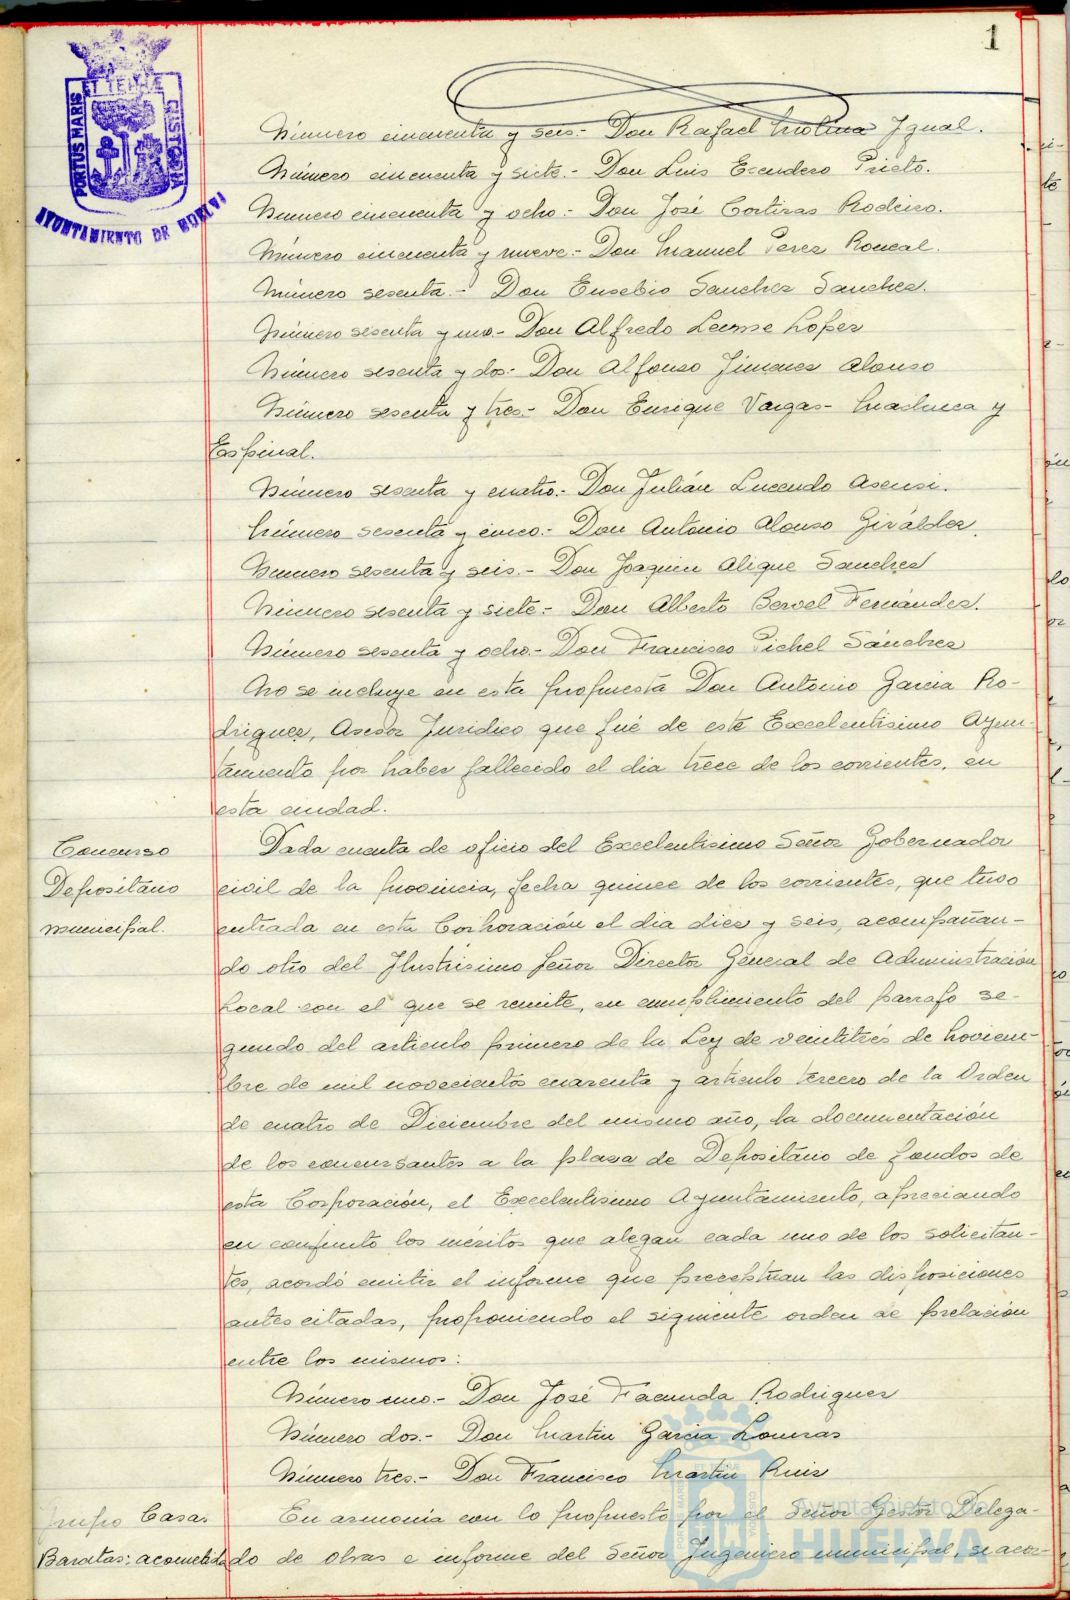 1
PORTUS MARIS
ET TERRÆ
CUSTODIA
AYUNTAMIENTO DE HUELVA
Número cincuenta y seis.- Don Rafael Molina Igual.
Número cincuenta y siete.- Don Luis Escudero Prieto.
Número cincuenta y ocho.- Don José Cortizas Rodeiro.
Número cincuenta y nueve.- Don Manuel Perez Roncal.
Número sesenta.- Don Eusebio Sanchez Sanchez.
Número sesenta y uno.- Don Alfredo Lopez
Número sesenta y dos.- Don Alfonso Jimenez Alonso
Número sesenta y tres.- Don Enrique Vargas-Machuca y
Espinal.
Número sesenta y cuatro.- Don Julián Lucendo Asensi.
Número sesenta y cinco.- Don Antonio Alonso Giráldez.
Número sesenta y seis.- Don Joaquin Alique Sanchez
Número sesenta y siete.- Don Alberto Bervel Fernández.
Número sesenta y ocho.- Don Francisco Pichel Sánchez
No se incluye en esta propuesta Don Antonio Garcia Ro-
driguez, Asesor Juridico que fué de este Excelentisimo Ayun-
tamiento por haber fallecido el dia trece de los corrientes, en
esta ciudad.
Concurso
Depositario
municipal.
Dada cuenta de oficio del Excelentisimo Señor Gobernador
civil de la provincia, fecha quince de los corrientes, que tuvo
entrada en esta Corporación el dia diez y seis, acompañan-
do otro del Ilustrisimo Señor Director General de Administración
Local con el que se remite, en cumplimiento del parrafo se-
gundo del articulo primero de la Ley de veintitrés de Noviem-
bre de mil novecientos cuarenta y articulo tercero de la Orden
de cuatro de Diciembre del mismo año, la documentación
de los concursantes a la plaza de Depositario de fondos de
esta Corporación, el Excelentisimo Ayuntamiento, apreciando
en conjunto los méritos que alegan cada uno de los solicitan-
tes, acordó emitir el informe que preceptúan las disposiciones
antes citadas, proponiendo el siguiente orden de prelación
entre los mismos:
Número uno.- Don José Facunda Rodriguez
Número dos.- Don Martin Garcia Lomas
Número tres.- Don Francisco Martin Ruiz
Grupo Casas
Baratas: acometida
En armonia con lo propuesto por el Señor Gestor Delega-
do de Obras e informe del Señor Ingeniero municipal, se acor-
Ayuntamiento de
HUELVA